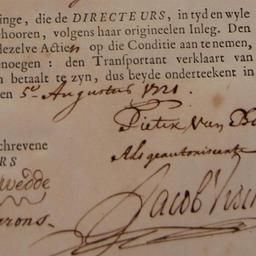 inge, die de DIRECTEURS, in tyd en wyle
hooren, volgens haar origineelen Inleg. Den
dezelve Actien op die Conditie aan te nemen,
enoegen: den Transportant verklaart van
n betaalt te zyn, dus beyde onderteekent in
en 5e Augustus 1721.
Pieter Van
chrevene
Als geautoriseerde
RS
wedde
Jacob
arons.